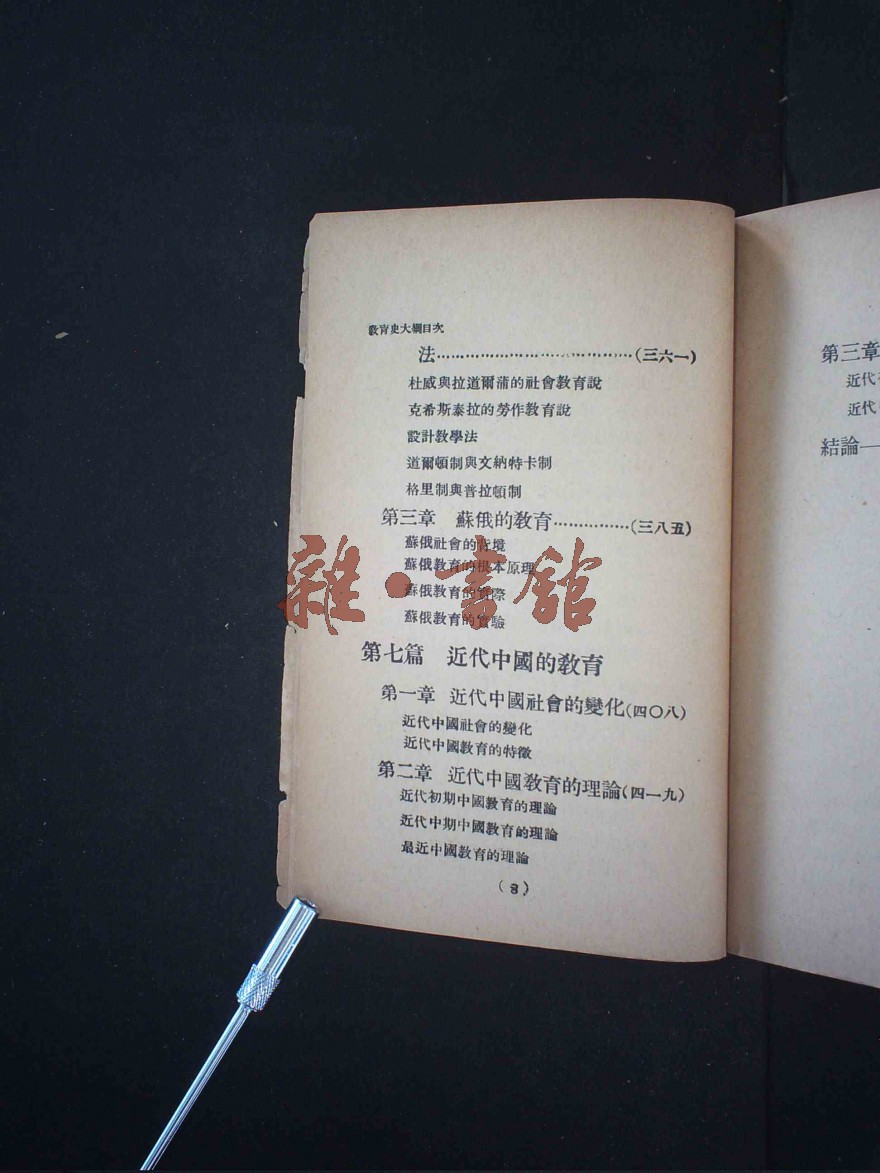 教育史大綱目次
法……………………………(三六一)
杜威與拉道爾蒲的社會教育說
克希斯泰拉的勞作教育說
設計教學法
道爾頓制與文納特卡制
格里制與普拉頓制
第三章 蘇俄的教育……………(三八五)
蘇俄社會的背境
蘇俄教育的根本原理
蘇俄教育的實際
蘇俄教育的實驗
雜·書舘
第七篇 近代中國的教育
第一章 近代中國社會的變化(四〇八)
近代中國社會的變化
近代中國教育的特徵
第二章 近代中國教育的理論(四一九)
近代初期中國教育的理論
近代中期中國教育的理論
最近中國教育的理論
(8)
第三章
近代
近代
結論—